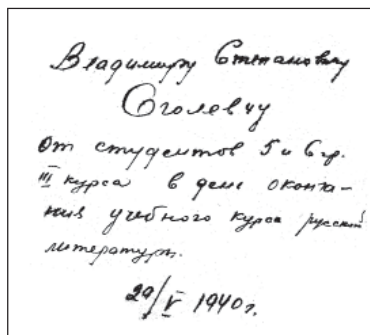 Владимиру Степановичу
Сголевчу
От студентов 5 и 6 гр.
III курса в день оконча-
ния учебного курса русской
литературы.
29/V 1940 г.